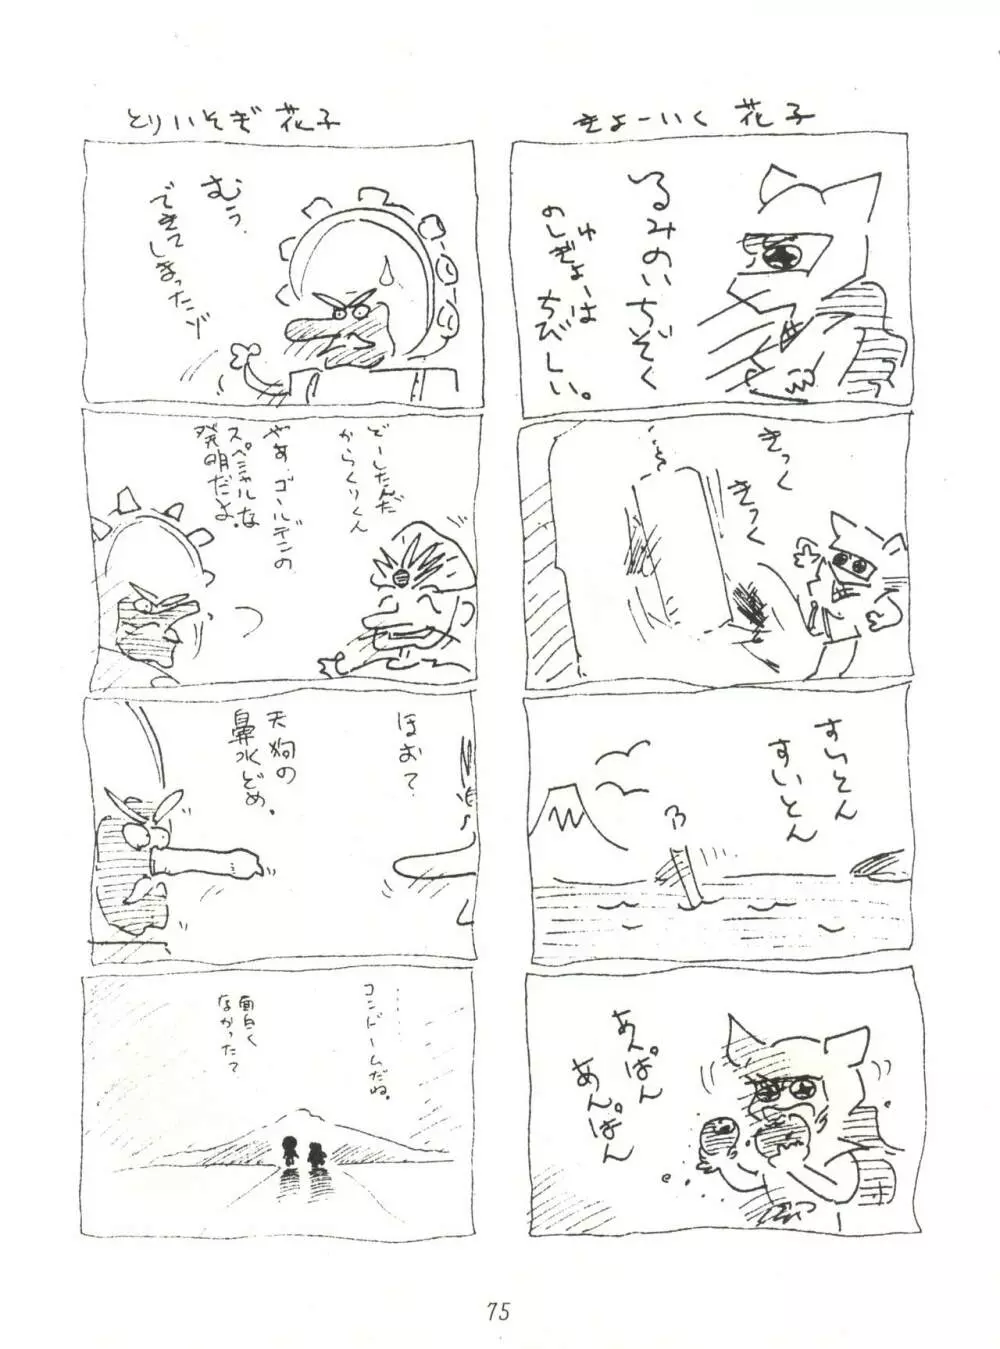 きょーいく 花子
るみのいちぞく
のしゅぎょーは
ちびしい。
きっく
きっく
すいとん
すいとん
あんぱん
あんぱん
とりいそぎ 花子
むう、
できて
しまったゾ
どーしたんだ
からくりくん
やあ、ゴールデンの
スペシャルな
発明だよ。
ほお?
天狗の
鼻水どめ。
‥‥‥
コンドームだね。
面白く
なかった?
75